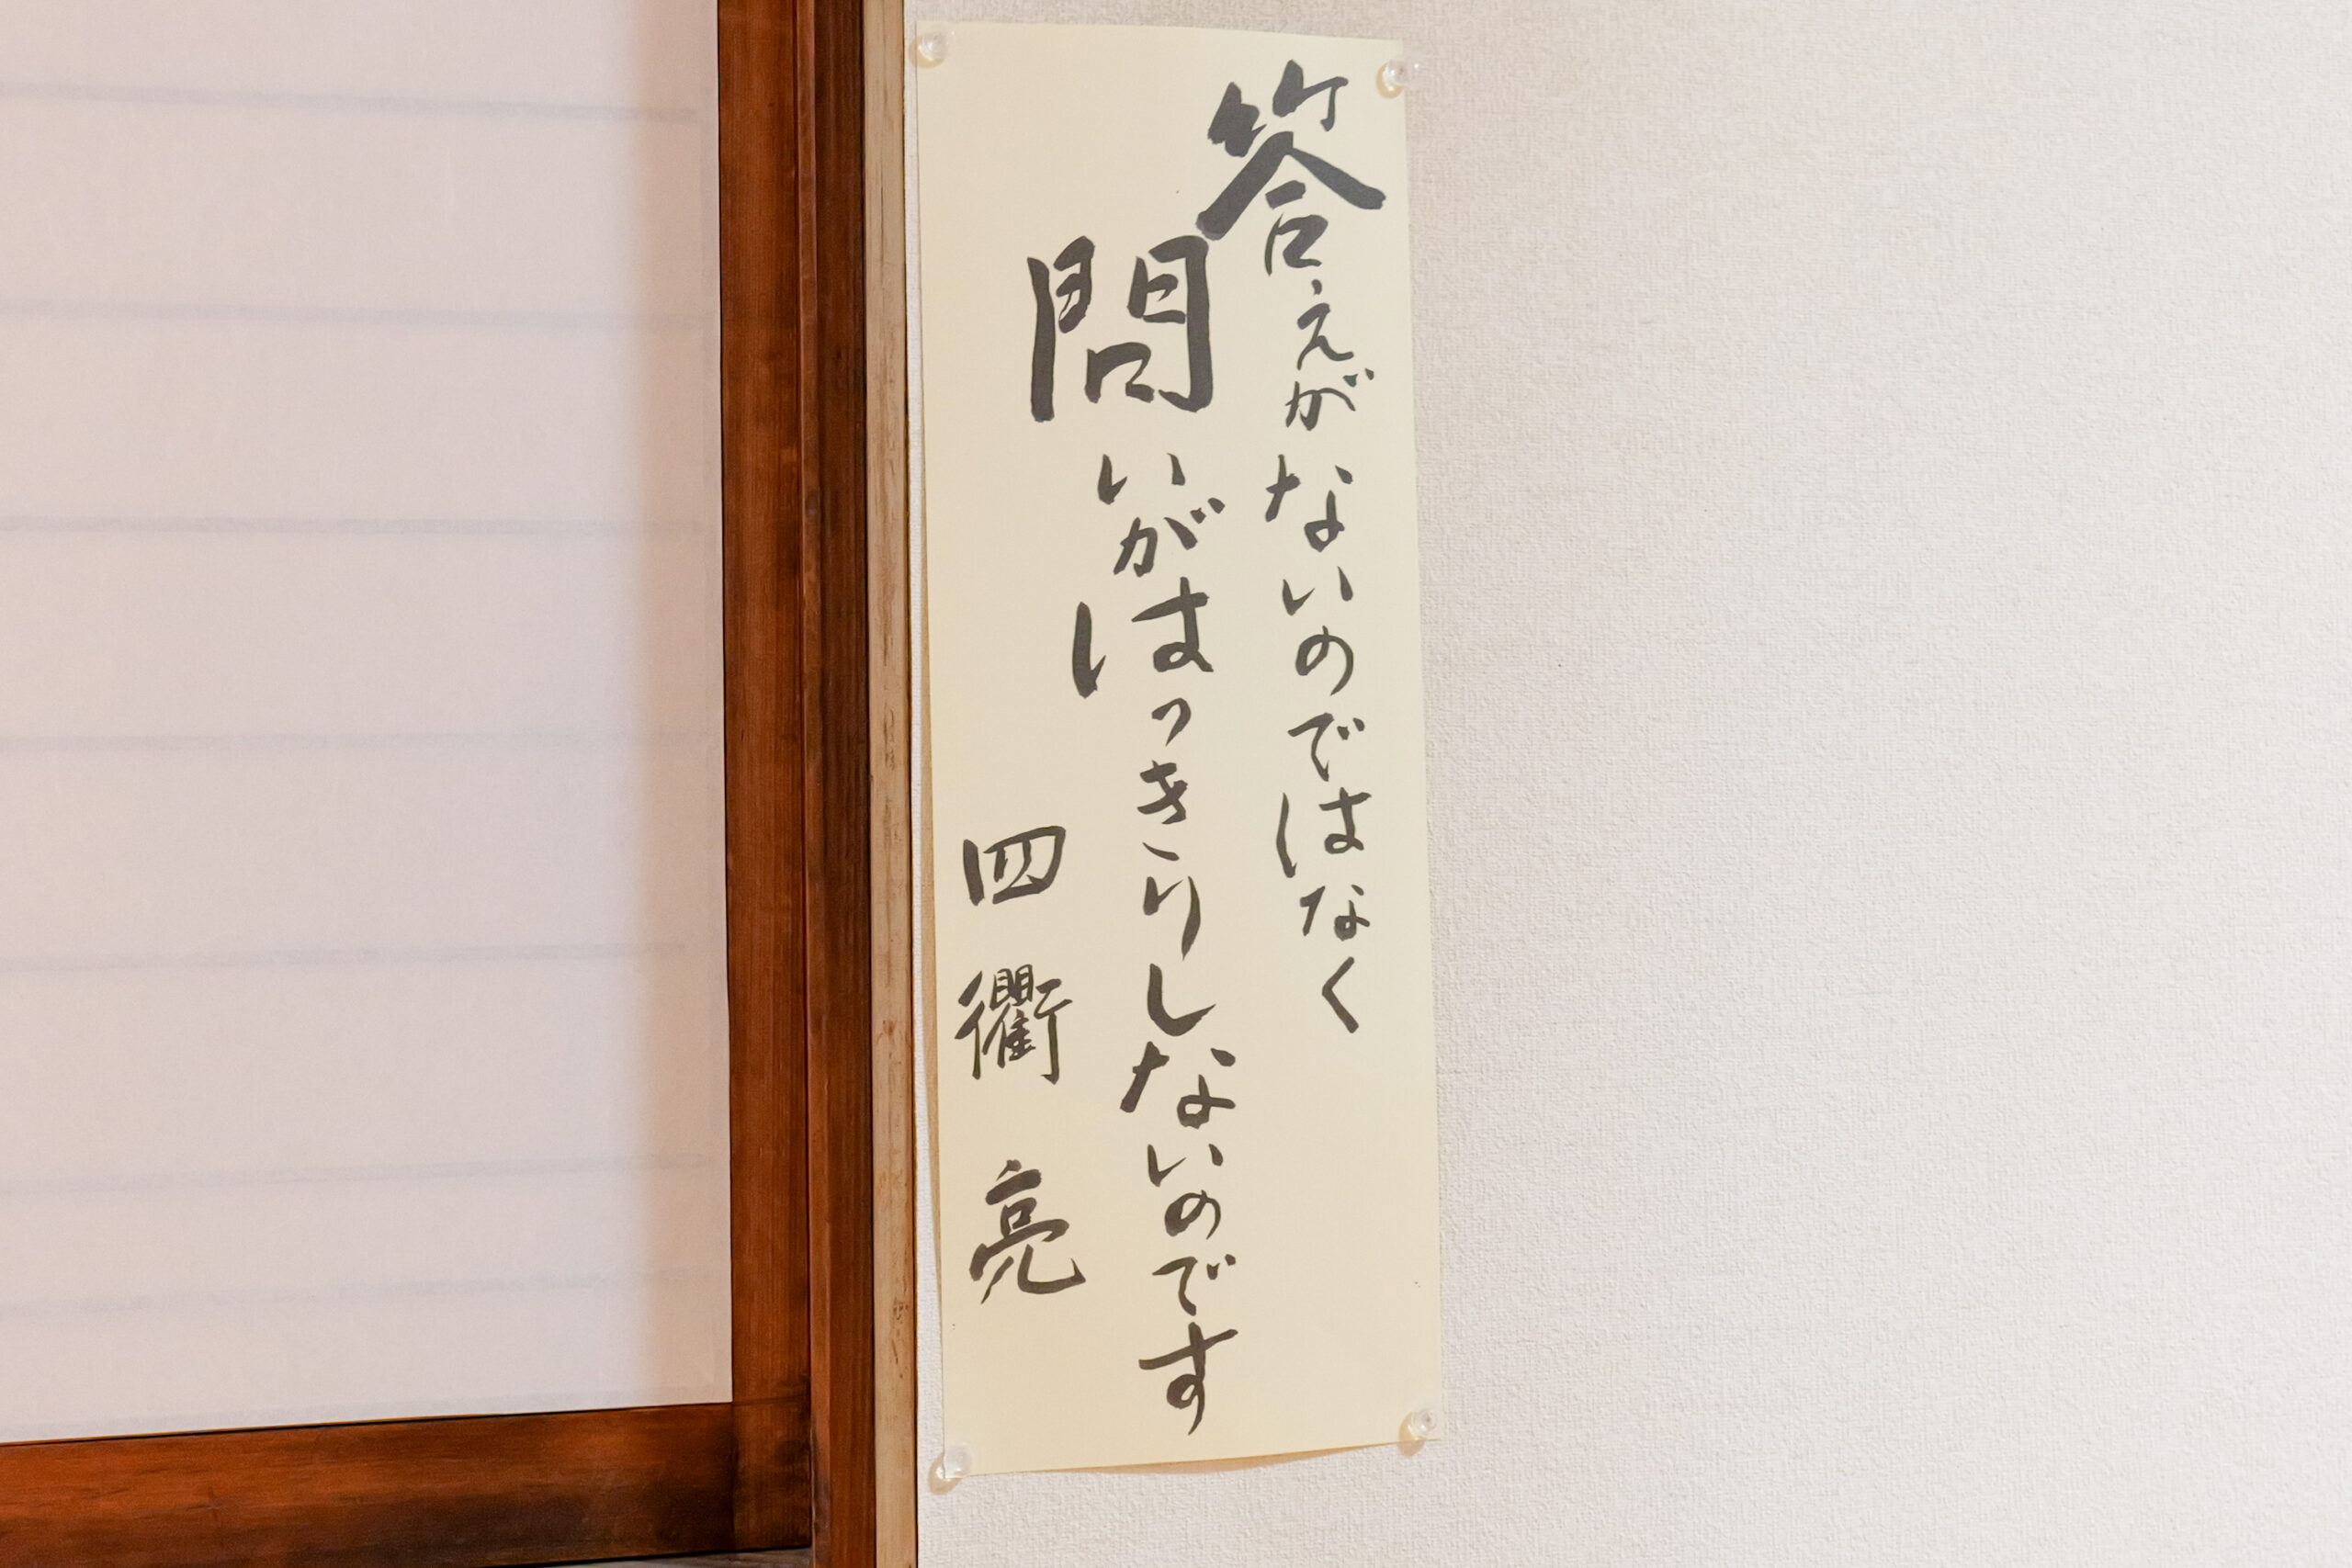 答えがないのではなく
問いがはっきりしないのです
四衢亮